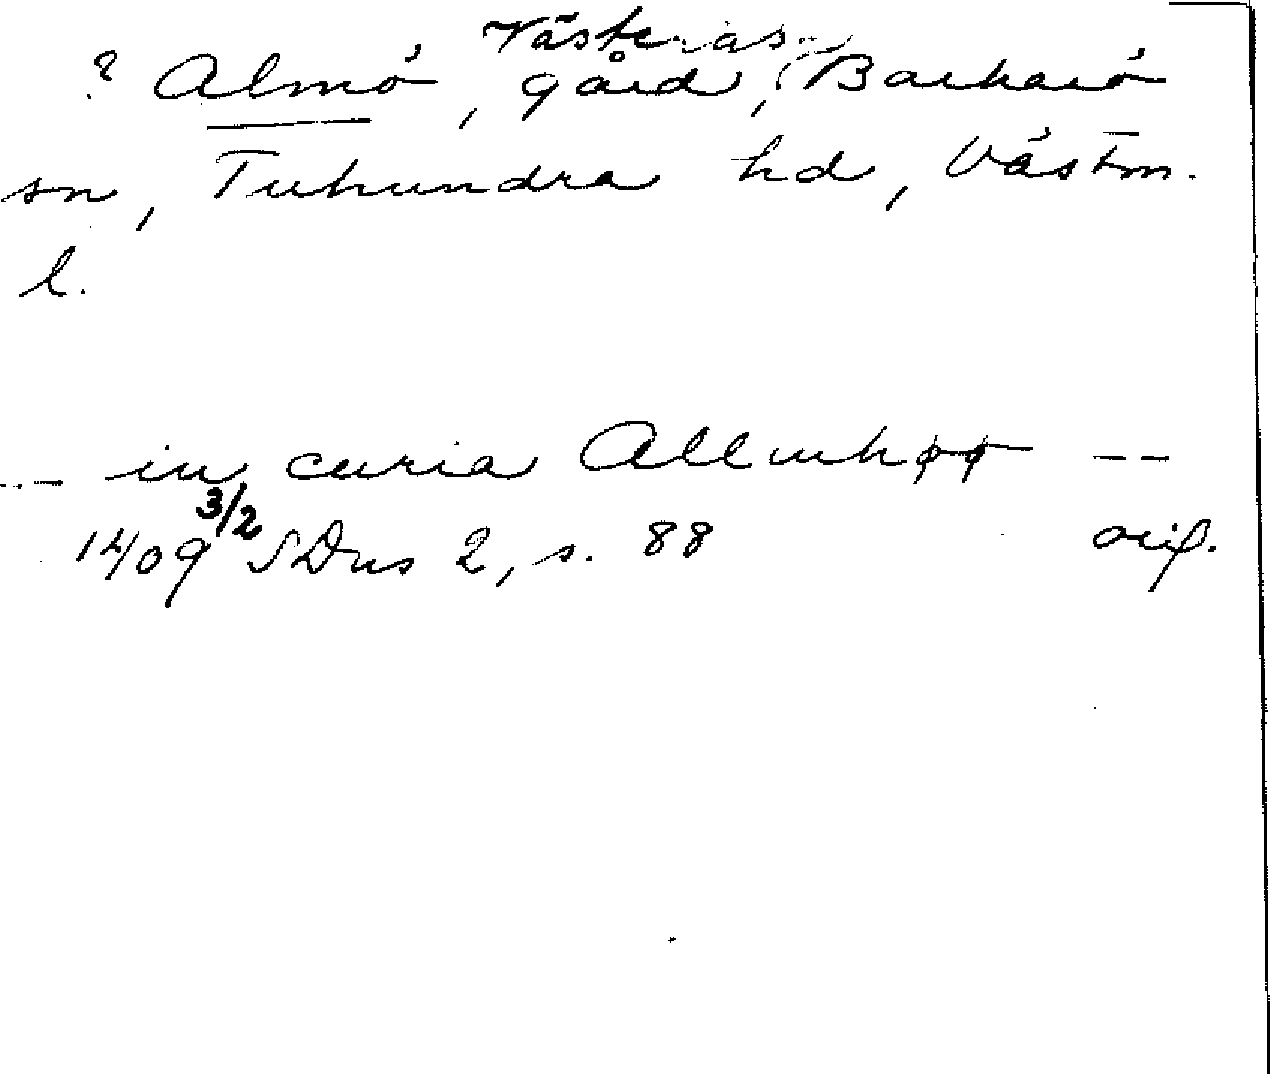 Västerås
? Almö, gård, Barkarö
sn, Tuhundra hd, Västm.
l.
--- in curia Allmhøø --
1409 3/2 SDns 2, s. 88 orig.